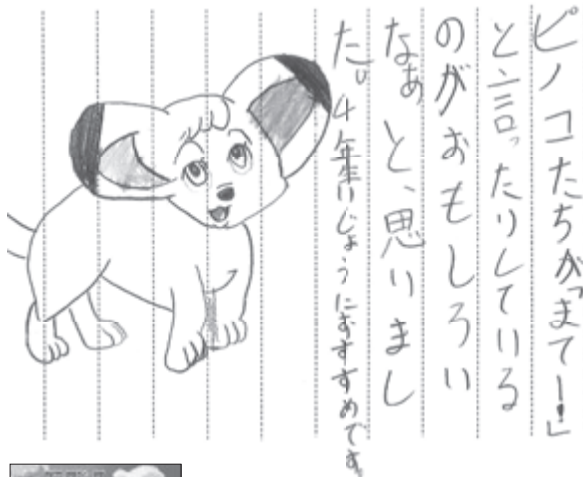 ピノコたちが「まてー!」
と言ったりしている
のがおもしろい
なぁと、思いまし
た。4年生いじょうにおすすめです。